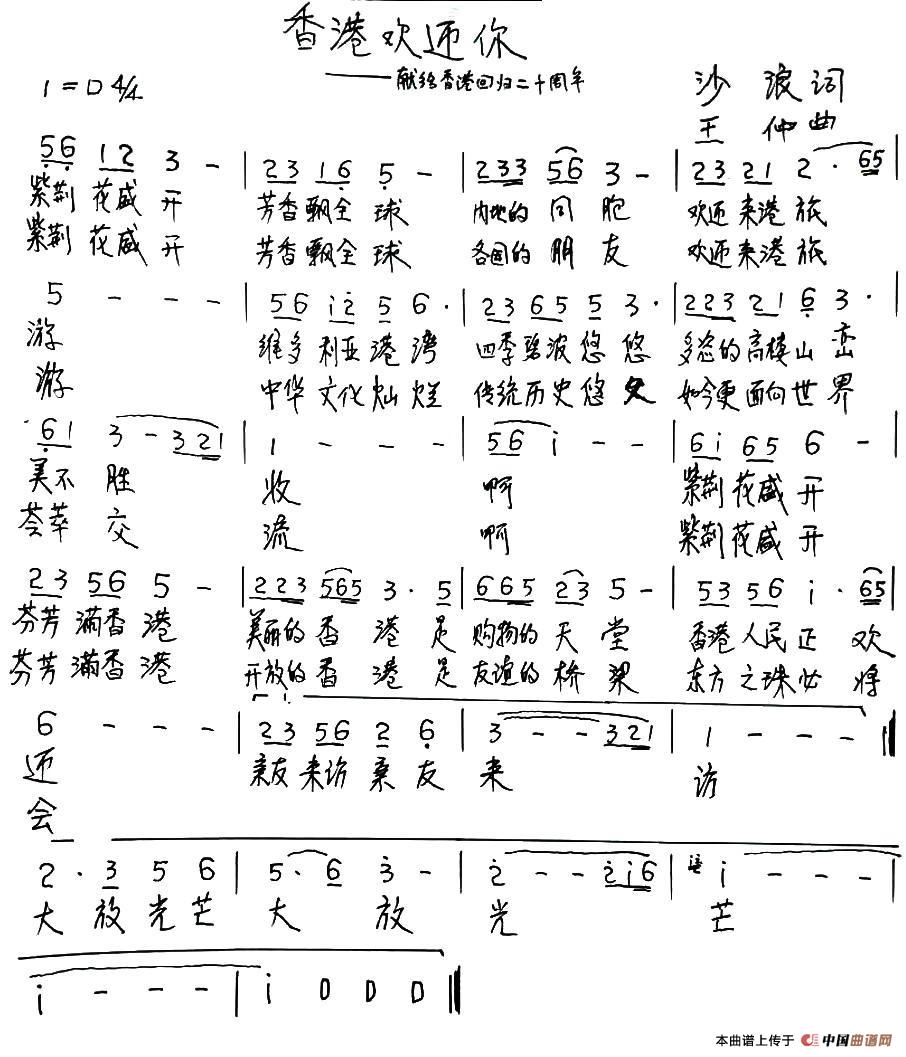 香港欢迎你
——献给香港回归二十周年
1=D 4/4
沙浪词
王仲曲
56 12 3 - | 23 16 5 - | 233 56 3 - | 23 21 2 · 65
紫荆花盛开 芳香飘全球 内地的同胞 欢迎来港旅
紫荆花盛开 芳香飘全球 各国的朋友 欢迎来港旅
5 - - - | 56 i2 5 6 · | 23 65 5 3 · | 223 21 6 3 ·
游 维多利亚港湾 四季碧波悠悠 多姿的高楼山峦
游 中华文化灿烂 传统历史悠久 如今更面向世界
61 3 - 321 | 1 - - - | 56 i - - | 6i 65 6 - |
美不胜 收 啊 紫荆花盛开
荟萃交 流 啊 紫荆花盛开
23 56 5 - | 223 565 3 · 5 | 665 23 5 - | 53 56 i · 65
芬芳满香港 美丽的香港是 购物的天堂 香港人民正欢
芬芳满香港 开放的香港是 友谊的桥梁 东方之珠必将
1.
6 - - - | 23 56 2 6 | 3 - - 321 | 1 - - - ‖
迎 亲友来访亲友 来 访
会
2 · 3 5 6 | 5 · 6 3 - | 2 - - 2i6 | i - - - |
大放光芒 大放 光 芒
i - - - | i 0 0 0 ‖
本曲谱上传于 中国曲谱网